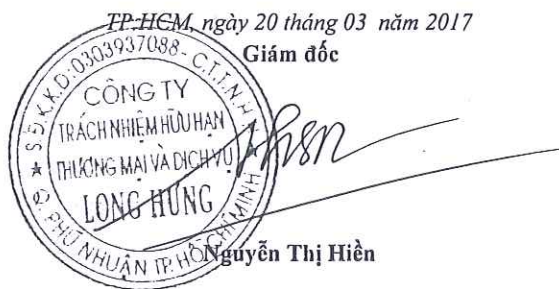 TP.HCM, ngày 20 tháng 03 năm 2017
Giám đốc
S.Đ.K.K.D:0303937088-C.T.T.N.H.H
CÔNG TY
TRÁCH NHIỆM HỮU HẠN
THƯƠNG MẠI VÀ DỊCH VỤ
LONG HƯNG
Q. PHÚ NHUẬN TP. HỒ CHÍ MINH
Hiền
Nguyễn Thị Hiền